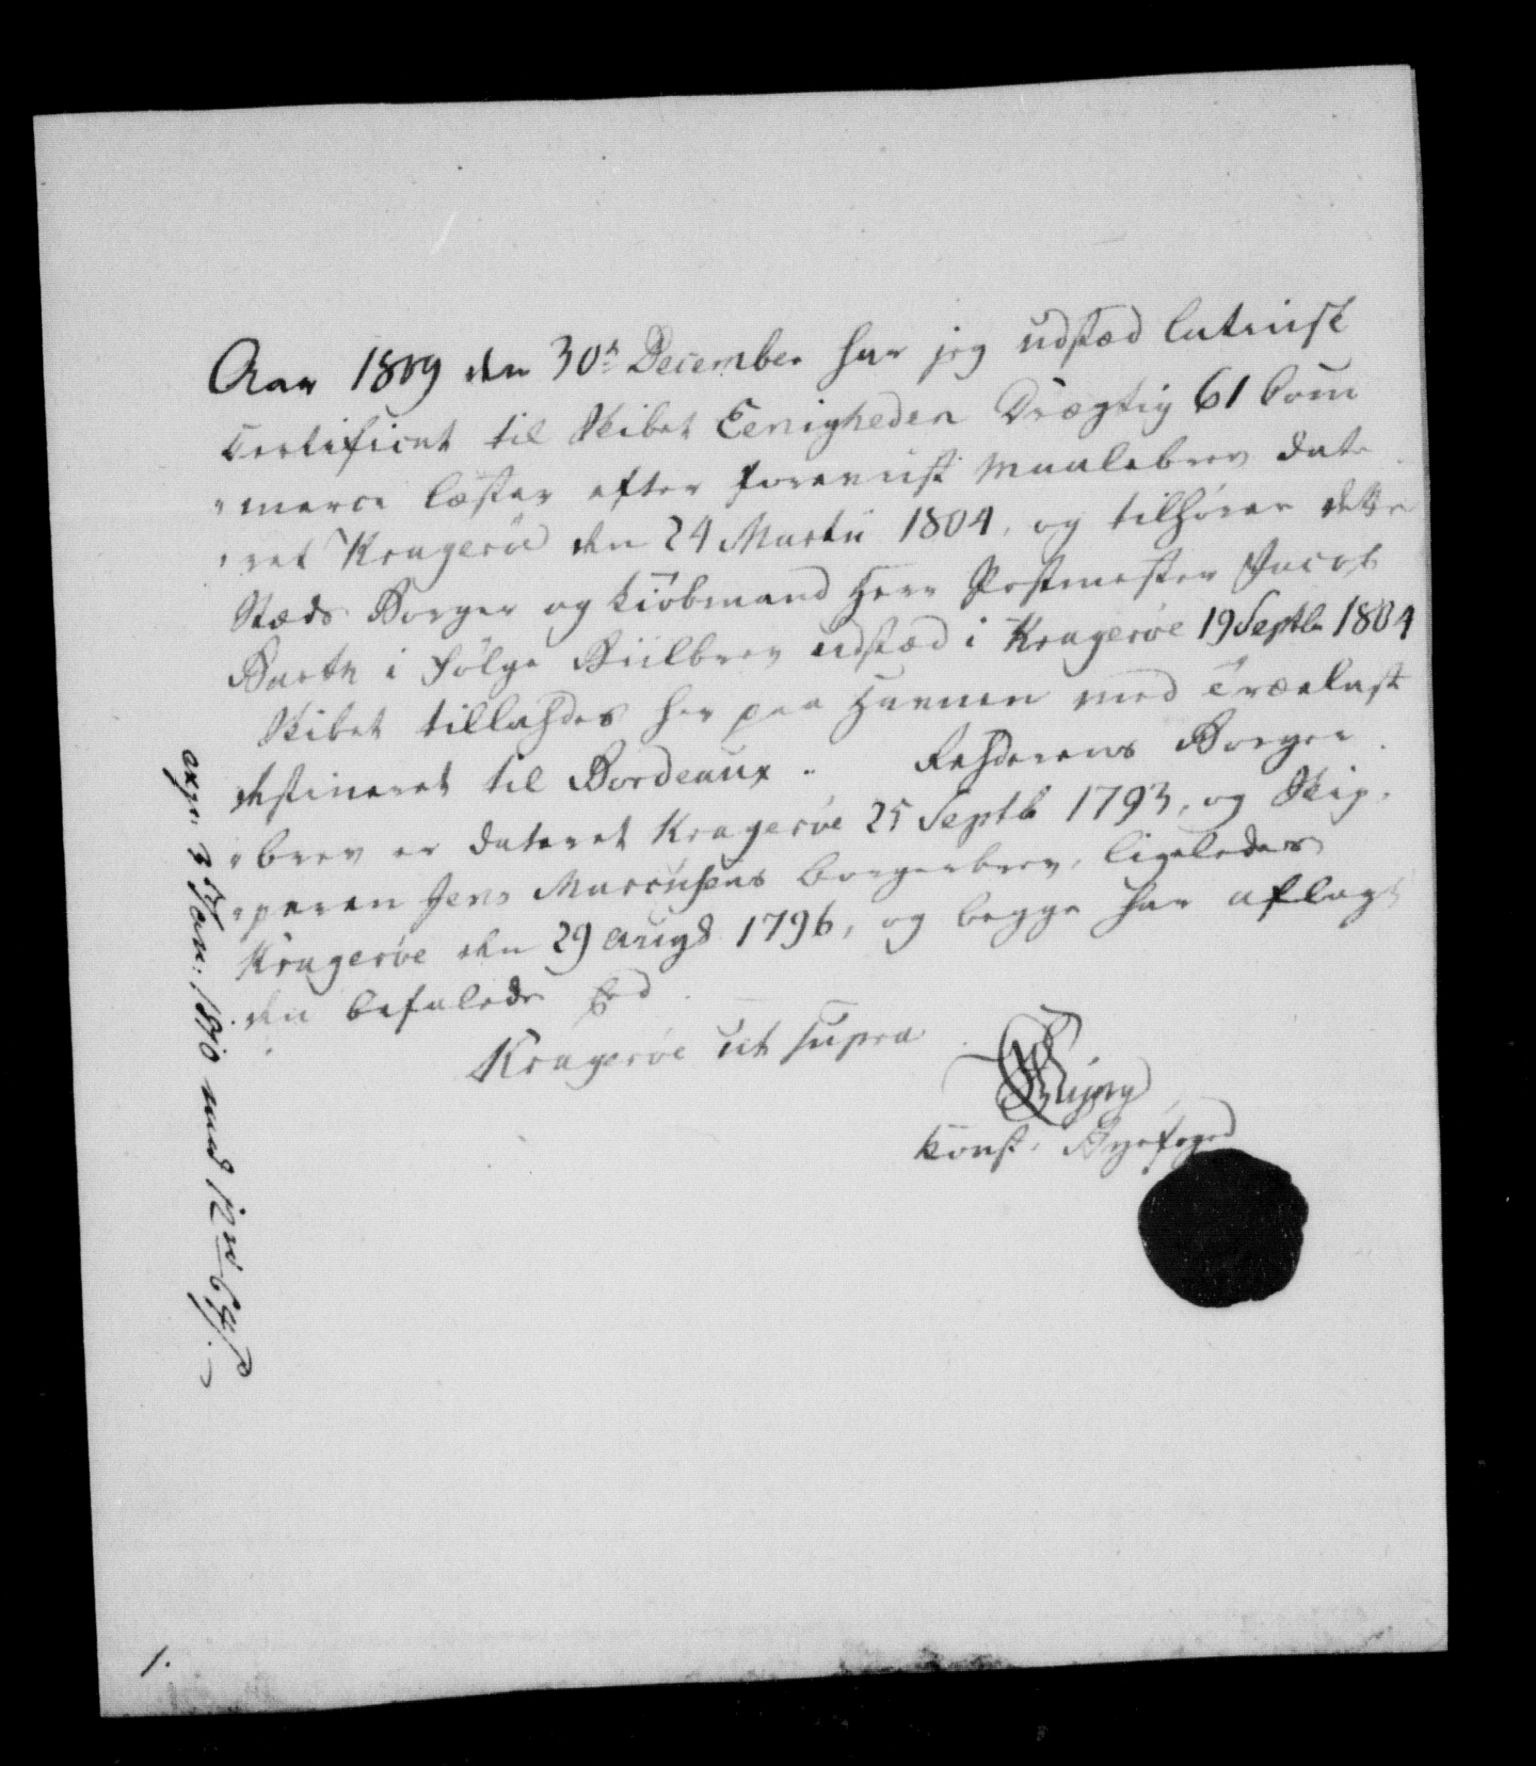 Aar 1809 den 30t December har jeg udstæd latinsk
Certificat til Skibet Eenigheden Drægtig 61 Com
"merce læster efter forevist Maalebrev date
"ret Kragerøe den 24 Martii 1804, og tilhører dette
Stæds Borger og kiöbmand Herr Postmester Jacob
Barth i følge Biilbrev udstæd i Kragerøe 19 Septbr 1804
Skibet tilladses her paa Havnen med Trælast
destineret til Bordeaux .. Rehderens Borger
"brev er dateret Kragerøe 25 Septbr 1793, og Skip,
"peren Jens Marcusens borgerbrev, ligeledes
Kragerøe den 29 Augs 1796, og begge har aflagt
den befalede Eed
Kragerøe ut supra
Const. Byefoged
exp: 3 Jan: 1810 med
1.